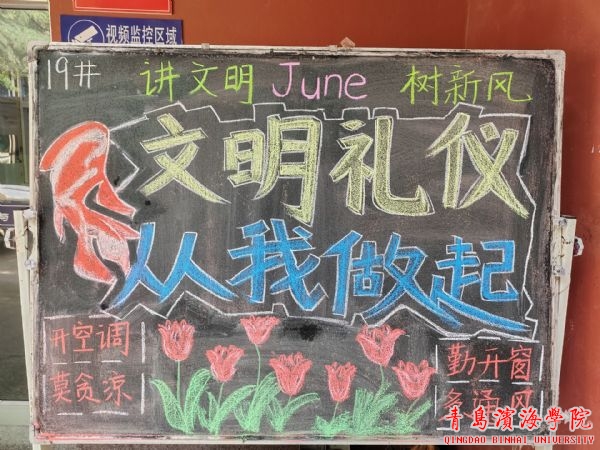 视频监控区域
19#
讲文明 June 树新风
文明礼仪
从我做起
开空调
莫贪凉
勤开窗
多通风
青岛滨海学院
QINGDAO BINHAI UNIVERSITY